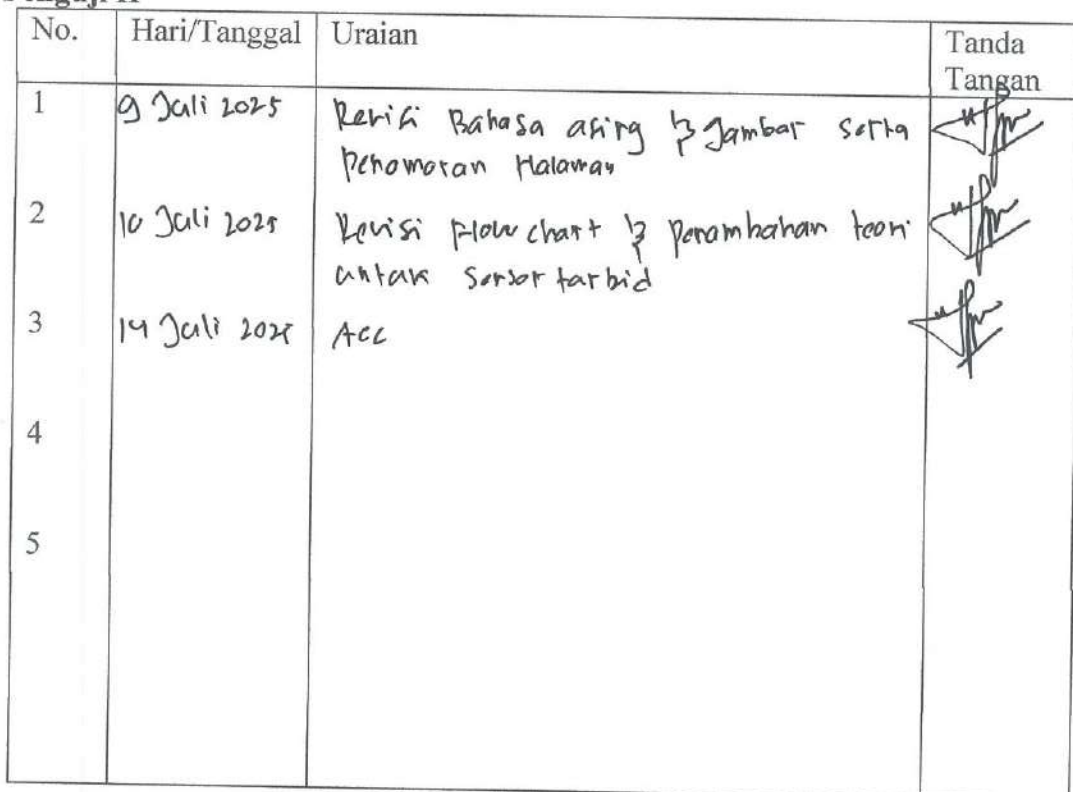 No. Hari/Tanggal Uraian Tanda
Tangan
1 9 Juli 2025 Revisi Bahasa asing & Gambar serta
Penomoran Halaman
2 10 Juli 2025 Revisi Flowchart & penambahan teori
untuk sensor turbid
3 14 Juli 2025 Acc
4
5